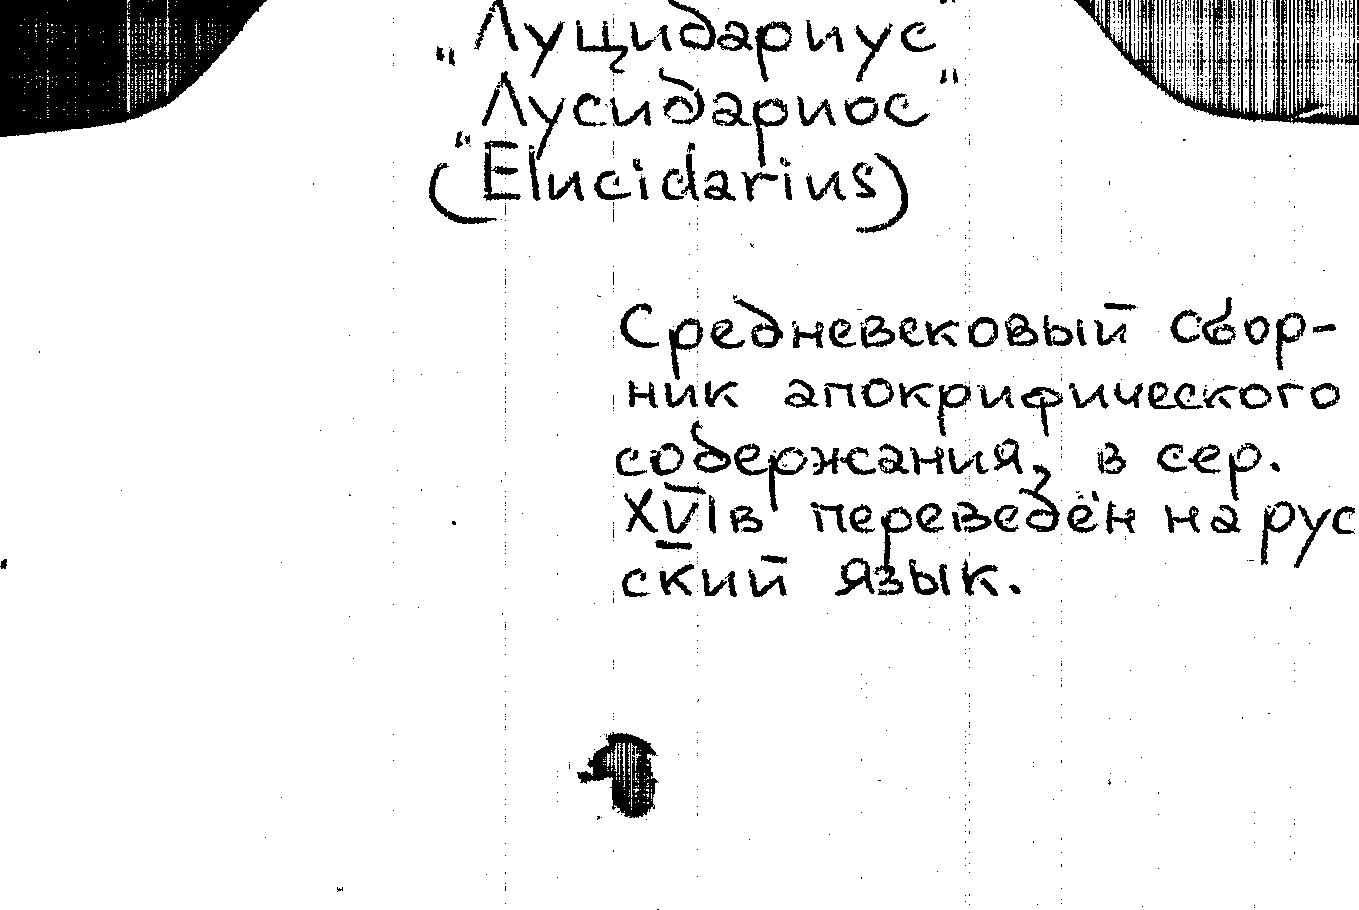 "Луцидариус"
Лусидариос"
("Elucidarius)
Средневековый сбор-
ник апокрифического
содержания, в сер.
XVI в переведён на рус
ский язык.